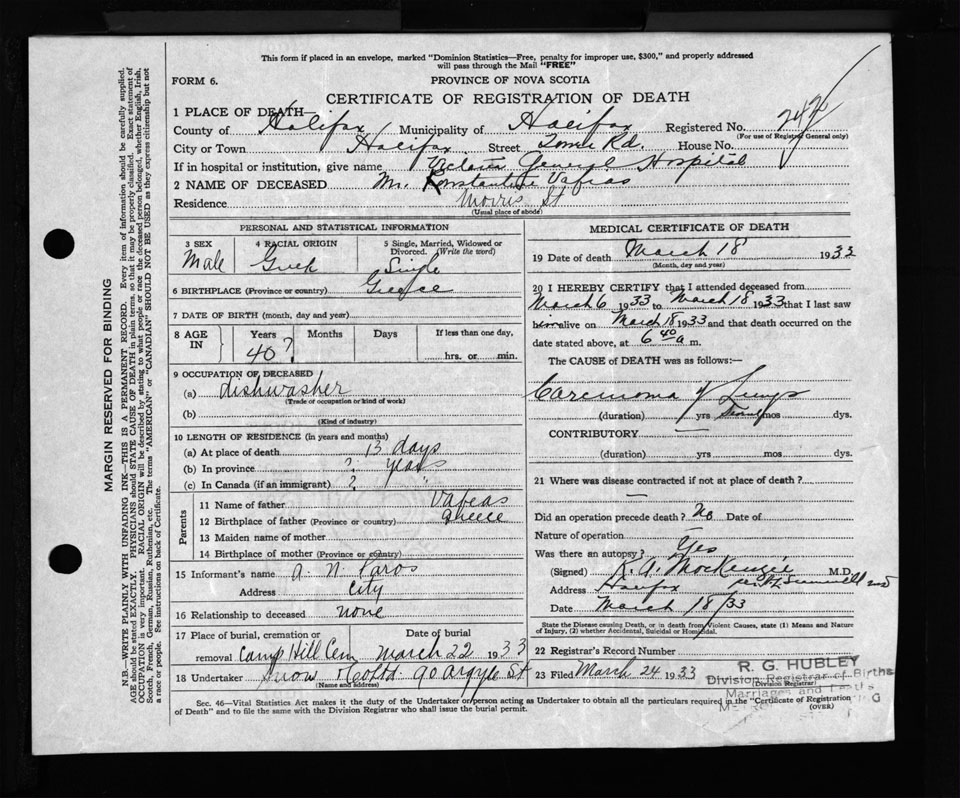 This form if placed in an envelope, marked "Dominion Statistics—Free, penalty for improper use, $300," and properly addressed
will pass through the Mail "FREE"
FORM 6.
PROVINCE OF NOVA SCOTIA
CERTIFICATE OF REGISTRATION OF DEATH
1 PLACE OF DEATH
County of Halifax Municipality of Halifax Registered No.
(For use of Registrar General only)
City or Town Halifax Street Tower Rd. House No.
If in hospital or institution, give name Victoria General Hospital
2 NAME OF DECEASED Mr. Konstantine Vafeas
Residence Morris St
(Usual place of abode)
PERSONAL AND STATISTICAL INFORMATION
3 SEX 4 RACIAL ORIGIN 5 Single, Married, Widowed or
Divorced. (Write the word)
Male Greek Single
6 BIRTHPLACE (Province or country) Greece
7 DATE OF BIRTH (month, day and year)
8 AGE IN Years Months Days If less than one day,
40? hrs. or min.
9 OCCUPATION OF DECEASED
(a) dishwasher
(Trade or occupation or kind of work)
(b)
(Kind of industry)
10 LENGTH OF RESIDENCE (in years and months)
(a) At place of death 13 days
(b) In province ? years
(c) In Canada (if an immigrant) ? "
Parents
11 Name of father Vafeas
12 Birthplace of father (Province or country) Greece
13 Maiden name of mother
14 Birthplace of mother (Province or country)
15 Informant's name A. N. Paros
Address City
16 Relationship to deceased none
17 Place of burial, cremation or Date of burial
removal Camp Hill Cem March 22 1933
18 Undertaker Snow & Co Ltd 90 Argyle St
(Name and address)
MEDICAL CERTIFICATE OF DEATH
19 Date of death March 18 1933
(Month, day and year)
20 I HEREBY CERTIFY that I attended deceased from
March 6 1933 to March 18 1933 that I last saw
him alive on March 18 1933 and that death occurred on the
date stated above, at 6 40 a.m.
The CAUSE of DEATH was as follows:—
Carcinoma of Lungs
(duration) yrs mos dys.
CONTRIBUTORY —
(duration) yrs mos dys.
21 Where was disease contracted if not at place of death?
—
Did an operation precede death? No Date of
Nature of operation —
Was there an autopsy? Yes
(Signed) K. A. MacKenzie M.D.
Address Halifax
Date March 18/33
State the Disease causing Death, or in death from Violent Causes, state (1) Means and Nature
of Injury, (2) whether Accidental, Suicidal or Homicidal.
22 Registrar's Record Number
23 Filed March 24 1933
R. G. HUBLEY
Division Registrar of Births
Division Registrar
Marriages and Deaths
Sec. 46—Vital Statistics Act makes it the duty of the Undertaker or person acting as Undertaker to obtain all the particulars required in the "Certificate of Registration
of Death" and to file the same with the Division Registrar who shall issue the burial permit.
(OVER)
MARGIN RESERVED FOR BINDING
N.B.—WRITE PLAINLY WITH UNFADING INK—THIS IS A PERMANENT RECORD. Every item of information should be carefully supplied.
AGE should be stated EXACTLY. PHYSICIANS should STATE CAUSE OF DEATH in plain terms, so that it may be properly classified. Exact statement of
OCCUPATION is very important. RACIAL ORIGIN will be described by stating to what people or race the deceased person belonged, whether English, Irish,
Scotch, French, German, Russian, Ruthenian, etc. The terms "AMERICAN" or "CANADIAN" SHOULD NOT BE USED as they express citizenship but not
a race or people. See instructions on back of Certificate.